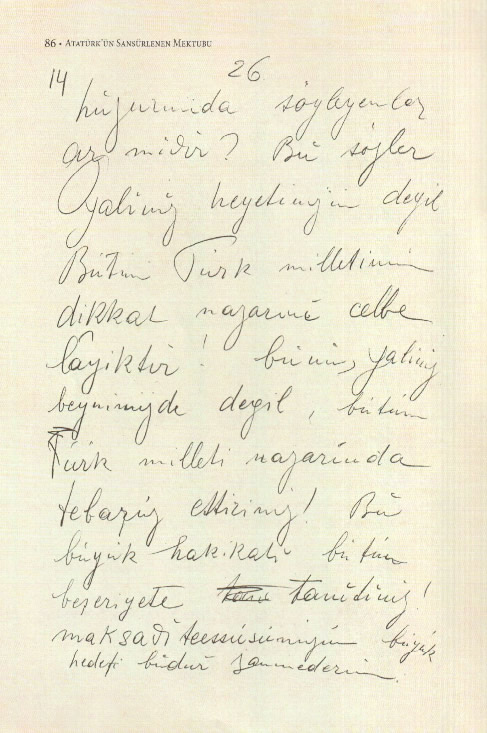 86 • ATATÜRK'ÜN SANSÜRLENEN MEKTUBU
14 26
huzurunida söyleyenler
az midir? Bu sözler
Yaliniz heyetinizin degil
Bütün Türk milletinin
dikkat nazarini celbe
layiktir! bunun, yaliniz
beynimizde degil, bütün
Türk milleti nazarinda
tebarüz ettiriniz! Bu
büyük hakikati bütün
beşeriyete tanitiniz!
maksadi teessüsünüzün büyük
hedefi budur zannederim.